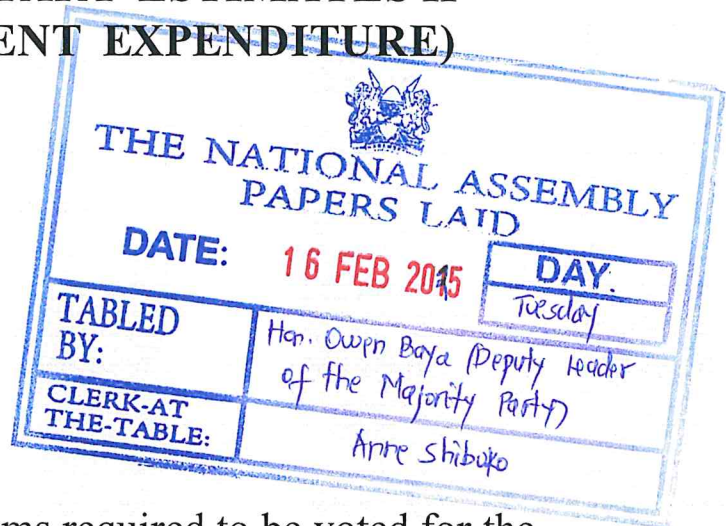 ESTIMATES II
ENT EXPENDITURE)
THE NATIONAL ASSEMBLY
PAPERS LAID
DATE: 16 FEB
DAY.
Tuesday
TABLED BY:
Hon. Owen Baya (Deputy Leader
of the Majority Party)
CLERK-AT
THE-TABLE:
Anne Shibuko
ms required to be voted for the